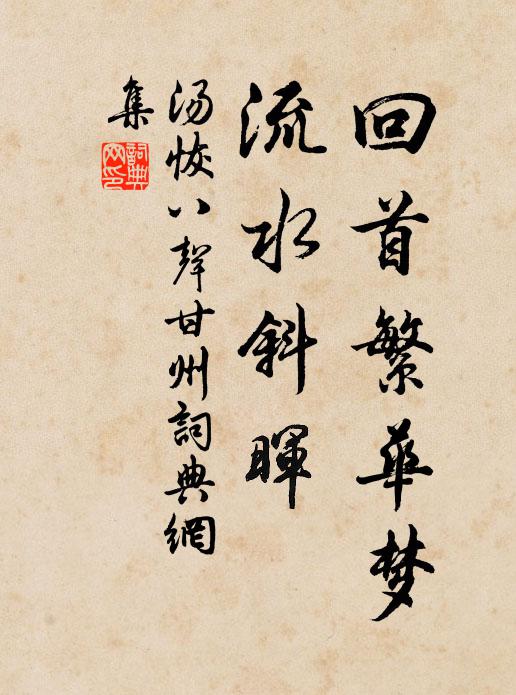 回首繁華梦
流水斜暉
汤恢八聲甘州詞典網
集
詞典網印